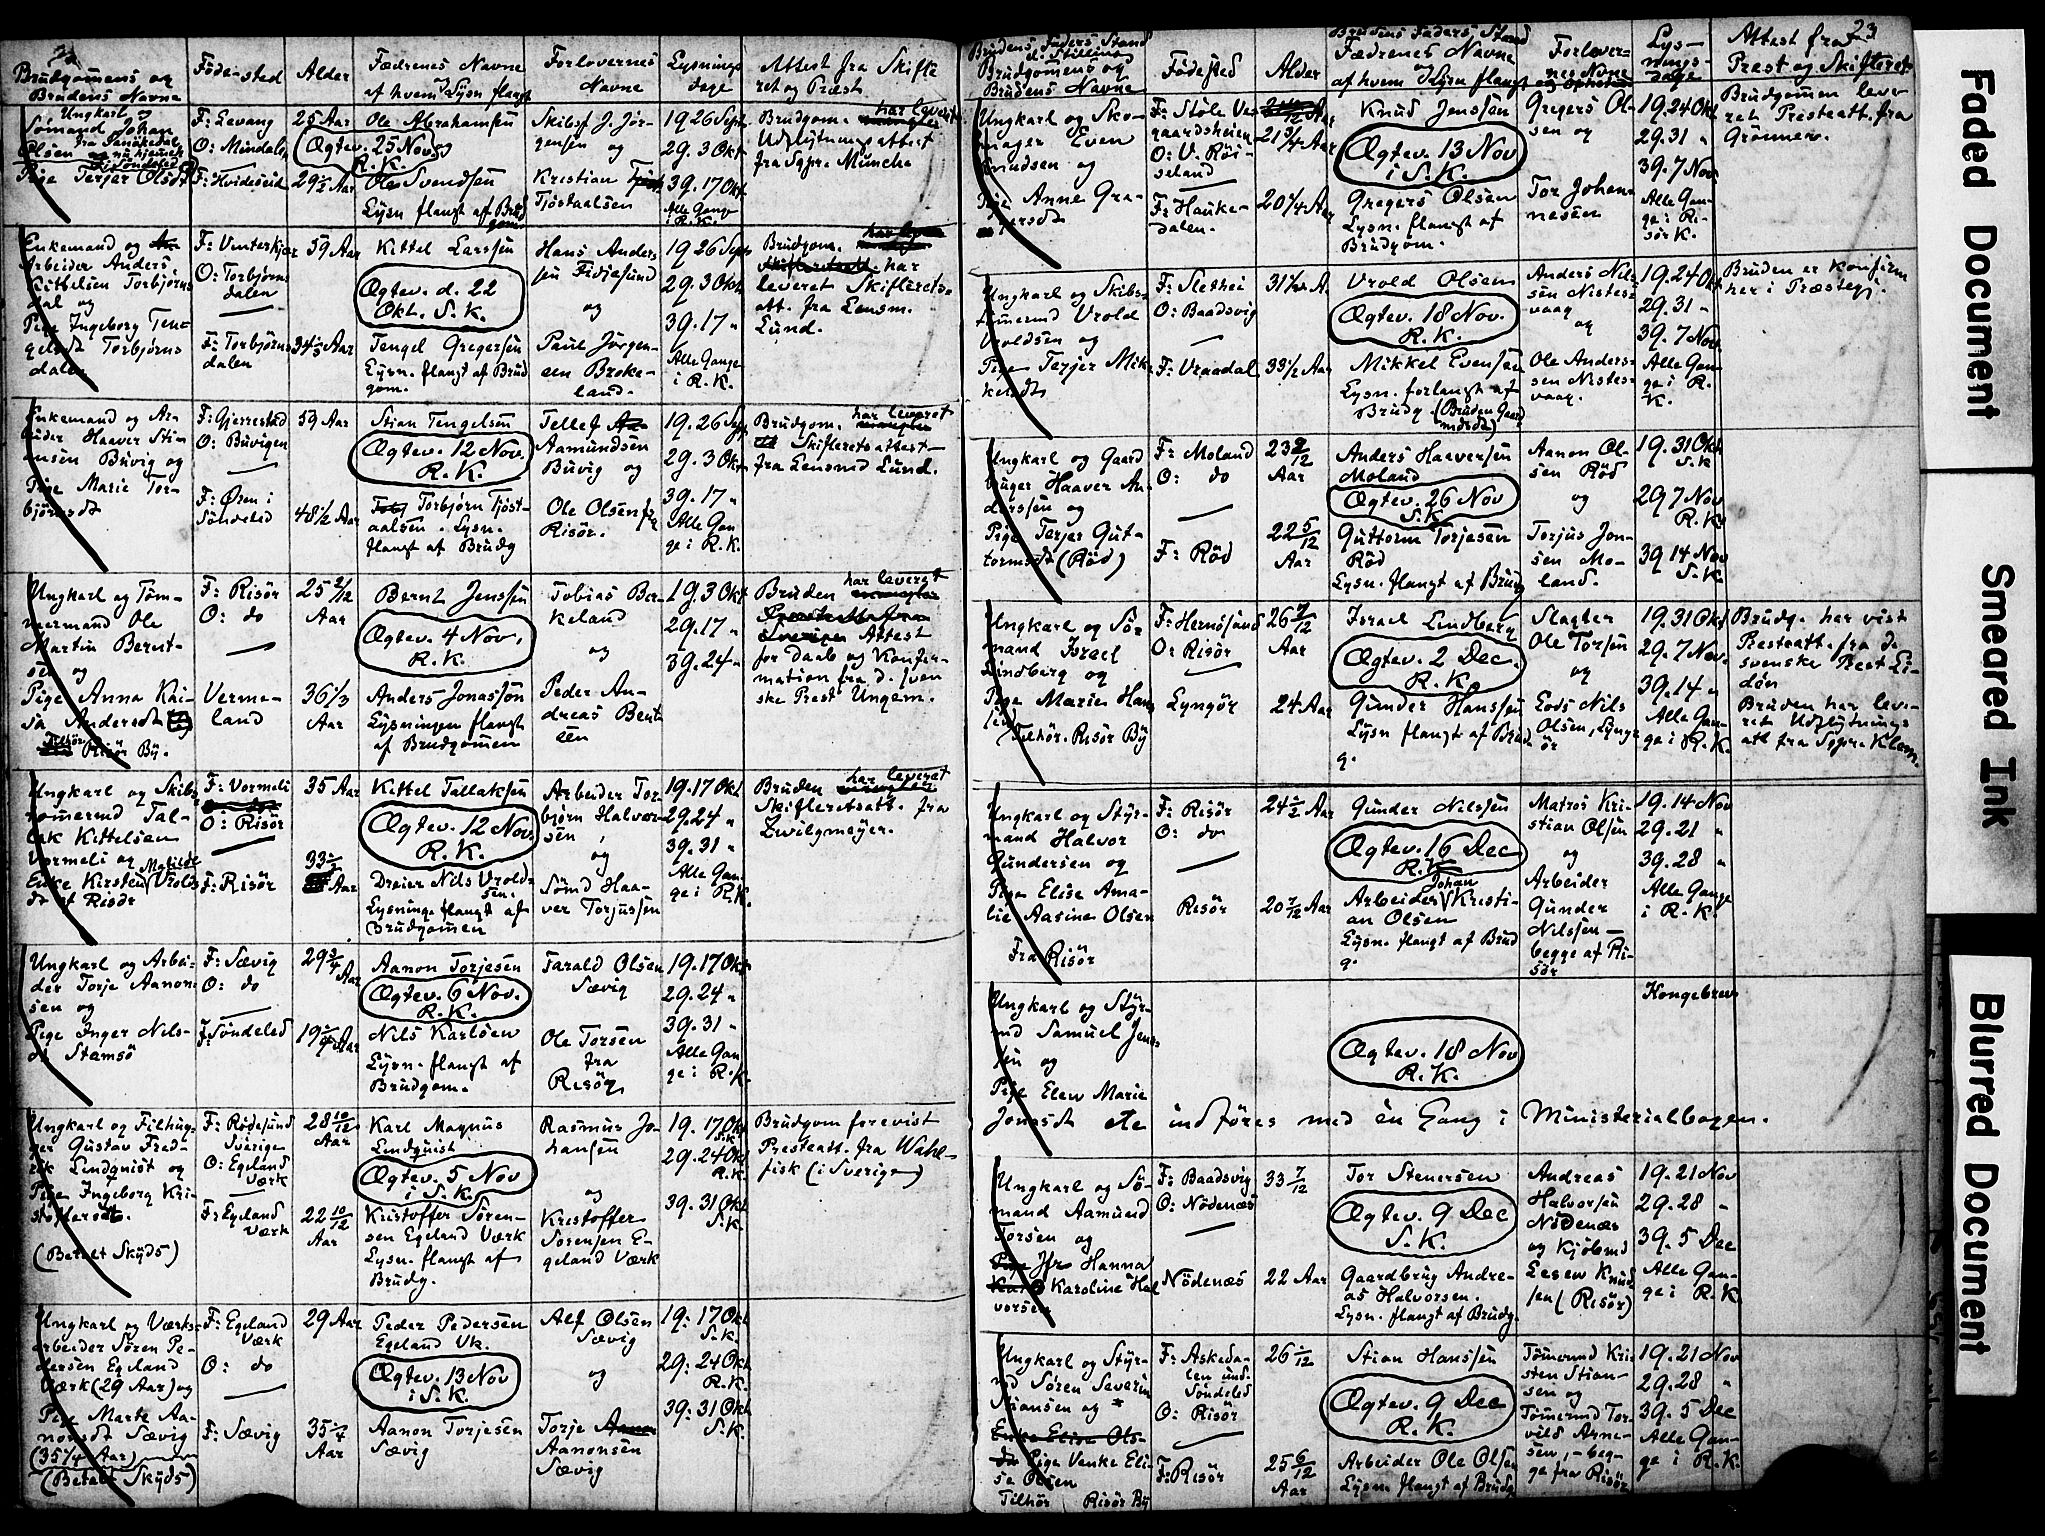 22
Brudgomens og
Brudens Navne
Fødested
Alder
Fædrenes Navne
af hvem Lysn flangt
Forlovernes
Navne
Lysnings
dage
Attest fra Skifte
ret og Præst
Ungkarl og
Sømand Johan
Olsen
Pige Terjer Olsdt
F: Levang
O: Mindalen
F: Hvideseid
25 Aar
29½ Aar
Ole Abrahamsen
Ægtev. 25 Nov
R.K.
Ole Svendsen
Lysn flangt af Brud
gom
Skibsf J. Jör-
gensen og
Kristian
Tjöstaalsen
19 26 Sept
29. 3 Okt
39. 17 Okt
Alle Gange
i R.K.
Brudgom. har leveret
Udflytningsattest
fra Sgpr. Munche
Enkemand og
Arbeider Anders
Kittelsen Torbjörns
dal og
Pige Ingeborg Ten-
gelsdt Torbjörns
dalen
F: Vinterkjær
O: Torbjörns
dalen
F: Torbjörns
dalen
59 Aar
34½ Aar
Kittel Larssen
Ægtev. d. 22
Okt. S.K.
Tengel Gregersen
Lysn. flangt af Brud
gom.
Hans Anders
sen Fidjesund
og
Paul Jörgen-
sen Broke-
land.
19 26 Sept
29. 3 Okt.
39. 17 "
Alle Gange
i R.K.
Brudgom. har
leveret Skifterets-
att. fra Lensm.
Lund.
Enkemand og Ar-
beider Haaver Sti-
ansen Buvig og
Pige Marie Tor-
björnsdt
F: Gjerrestad
O: Buvigen
F: Øren i
Söndeled
53 Aar
48½ Aar
Stian Tengelsen
Ægtev. 12 Nov.
R.K.
Torbjörn Tjöst-
aalsen. Lysn.
flangt af Brudg
Tellef
Aamundsen
Buvig og
Ole Olsen fra
Risör.
19. 26 Sept
29. 3 Okt
39. 17 "
Alle Gan
ge i R.K.
Brudgom. har leveret
Skifteretsattest
fra Lensmd Lund.
Ungkarl og Töm-
mermand Ole
Martin Bernt-
sen og
Pige Anna Kai-
sa Andersdt
Tilhör Risör By.
F: Risör
O: do
Verme-
land
25 2/12
Aar
36 1/3
Aar
Bernt Jenssen
Ægtev. 4 Nov.
R.K.
Anders Jonassen
Lysningen flangt
af Brudgommen
Tobias Ber-
keland
og
Peder An-
dreas Bernt
sen
19. 3 Okt
29. 17 "
39. 24 "
Bruden har leveret
Attest
for Daab og Konfir-
mation fra d. sven
ske Prest Ungern.
Ungkarl og Skibs
tömermd Tal-
lak Kittelsen
Vormeli og
Enke Kirsten Matilde Vrolds
dt af Risör
F: Vormeli
O: Risör
F: Risör
35 Aar
33½ Aar
Kittel Tallaksen
Ægtev. 12 Nov.
R.K.
Dreier Nils Vrold-
sen.
Lysning flangt af
Brudgommen
Arbeider Tor
björn Halvor-
sen,
og
Sömd Haa-
ver Torjussen
19. 17 Okt
29. 24 "
39. 31 "
Alle Gan
ge i R.K.
Bruden har leveret
Skifteretsatt. fra
Zwilgmeyer.
Ungkarl og Arbei-
der Torje Aanon-
sen og
Pige Inger Nils-
dt Stamsö
F: Sævig
O: do
F: Söndeled
29 3/4 Aar
Aanon Torjesen
Ægtev. 6 Nov.
R.K.
Nils Karlsen
Lysn. flangt af
Brudgom.
Tarald Olsen
Sævig
Ole Torsen
fra
Risör
19. 17 Okt
29. 24 "
39. 31 "
Alle Gan
ge i R.K.
Ungkarl og Filhug-
ger Gustav Fred-
rik Lindquist og
Pige Ingeborg Kri-
stoffersdt.
(Betalt Skyds)
F: Rödesund
Sverige
O: Egeland
Værk
F: Egeland
Værk
28 10/12
Aar
22 10/12
Aar
Karl Magnus
Lindquist
Ægtev. 5 Nov
i S.K.
Kristoffer Sören-
sen Egeland Værk
Lysn. flangt af
Brudg.
Rasmus Jo
hansen
og
Kristoffer
Sörensen E-
geland Værk
19. 17 Okt
S.K.
29. 24 Okt
R.K.
39. 31 Okt
S.K.
Brudgom forevist
Presteatt. fra Wahl-
fisk (i Sverige)
Ungkarl og Værks-
arbeider Sören Pe-
dersen Egeland
Værk (29 Aar) og
Pige Marte Aa-
nonsdt Sævig
(35¼ Aar)
(Betalt Skyds)
F: Egeland
Værk
O: do
F: Sævig
29 Aar
35 ¼
Aar
Peder Pedersen
Egeland Vk.
Ægtev. 13 Nov
i S.K.
Aanon Torjesen
Sævig
Alf Olsen
Sævig
og
Torje
Aanonsen
Sævig
19. 17 Okt
S.K.
29. 24 Okt
R.K.
39. 31 Okt
S.K.
23
Brudens Faders Stand
Brudgomens og
Brudens Navne
Fødested
Alder
Brudens Faders Stand
Fædrenes Navne
og
af hvem Lysn flangt
Forlover-
nes Navne
Lys-
nings-
dage
Attest fra
Præst og Skifteret
Ungkarl og Sko-
mager Even
Evindsen og
Pige Anne Gre-
gersdt
F: Stöle Ve-
gaardsheien
O: V. Röi-
seland
F: Hauke-
dalen.
21 3/4 Aar
20 ¼ Aar
Knud Jenssen
Ægtev. 13 Nov
i S.K.
Gregers Olsen
Lysn. flangt af
Brudgom.
Gregers Ol-
sen og
Tor Johan-
nesen
19. 24 Okt
29. 31 "
39. 7 Nov
Alle Gan-
ge i Ri-
sör K.
Brudgommen leve-
ret Presteatt. fra
Grömner.
Ungkarl og Skibs-
tömermd Vrold
Vroldsen og
Pige Terjer Mik-
kelsdt
F: Slethei
O: Baadsvig
F: Vraadal
31½ A.
33½ Aar
Vrold Olsen
Ægtev. 18 Nov.
R.K.
Mikkel Evensen
Lysn. forlangt af
Brudg. (Bruden Gaard
mdsdt)
Anders Nils
sen Nistes-
vaag
og
Ole Anders-
sen Nistes-
vaag.
19. 24 Okt
29. 31 "
39. 7 Nov
Alle Gan-
ge i R.
K.
Bruden er konfirm
her i Præstegj.
Ungkarl og Gaard
bruger Haaver An-
derssen og
Pige Terjer Gut-
tormsdt (Röd)
F: Moland
O: do
F: Röd
23 9/12
Aar
22 5/12
Aar
Anders Haaversen
Moland
Ægtev. 26 Nov
S.K.
Guttorm Torjesen
Röd
Lysn. flangt af Brudg
Aanon Ol-
sen Röd
og
Torjus Jon-
sen Mo-
land.
19. 31 Okt
S.K.
29 7 Nov
R.K.
39 14 Nov
S.K.
Ungkarl og Sö-
mand Israel
Lindberg og
Pige Marie Hans
sen
(Tilhör. Risör By
F: Hernösund
O: Risör
Lyngör
26 7/12
Aar
24 Aar
Israel Lindberg
Ægtev. 2 Dec.
R.K.
Gunder Hanssen
Lysn flangt af Brud
g.
Slagter
Ole Torsen
og
Lods Nils
Olsen, Lyng-
ör
19. 31 Okt
29. 7 Nov.
39. 14 "
Alle Gan-
ge i R.K.
Brudg. har vist
Presteatt. fra de
svenske Prest Li-
dén
Bruden har leve-
ret Udflytnings
att fra Sgpr. Klem.
Ungkarl og Styr-
mand Halvor
Gundersen og
Pige Elise Ama-
lie Aasine Olsen
Fra Risör
F: Risör
O: do
Risör
24½ Aar
20 7/12 Aar
Gunder Nilssen
Ægtev. 16 Dec
R.K.
Arbeider Johan Kristi-
an Olsen
Lysn. flangt af Brud
g.
Matros Kri-
stian Olsen
og
Arbeider
Gunder
Nilssen -
begge af Ri-
sör
19. 14 Nov
29. 21 "
39. 28 "
Alle Gange
i R.K.
Ungkarl og Styr-
md Samuel Jens-
sen
og
Pige Elen Marie
Jonsdt etc indföres med én Gang i Ministerialbogen.
Ægtev. 18 Nov
R.K.
Kongebrev
Ungkarl og Sö-
mand Aamund
Torsen og
Jfr Hanna
Karoline Hal
vorsen
F: Baadsvig
O: Nödenæs
Nödenæs
33 7/12
22 Aar
Tor Stenersen
Ægtev. 9 Dec
S.K.
Gaardbrug Andre-
as Halvorsen.
Lysn. flangt af Brudg.
Andreas
Halvorsen
Nödenæs
og Kjöbmd
Lesen Knud
sen (Risör)
19. 21 Nov
29. 28 "
39. 5 Dec
Alle Gan-
ge i R.K.
Ungkarl og Styr-
md Sören Severin
Stiansen og
Enke Elise Ols-
dt Pige Venke Eli-
se Olsen
Tilhör Risör By
F: Askeda-
len und.
Söndeled
O: Risör
F: Risör
26 1/12
25 6/12
Aar
Stian Hanssen
Ægtev. 9 Dec
R.K.
Arbeider Ole Olsen
Lysn. flangt af Brudg
Tömermd Kri-
sten Stian-
sen og
Tömermd Tor-
vild Arne-
sen, - beg-
ge fra Risör
19. 21 Nov
29. 28 "
39. 5 Dec
Alle Gan-
ge i R.K.
Faded Document
Smeared Ink
Blurred Document